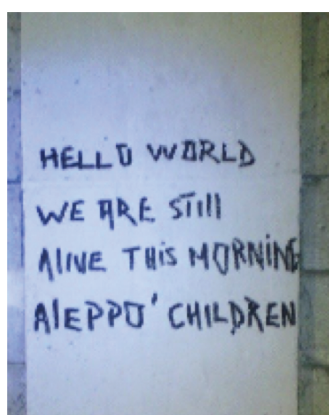 HELLO WORLD
WE ARE STIll
AlIVE THiS MORNiNE
AlEPPO' CHILDREN